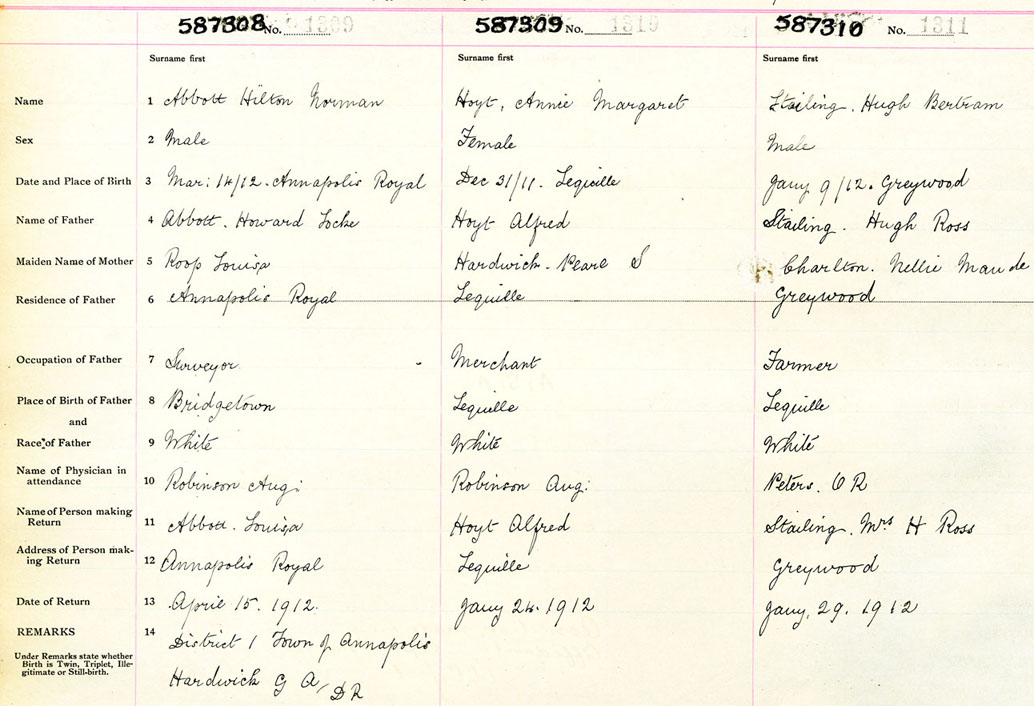 587308 No. 1309 587309 No. 1310 587310 No. 1311
Surname first Surname first Surname first
Name 1 Abbott Hilton Norman Hoyt, Annie Margaret Stailing. Hugh Bertram
Sex 2 Male Female Male
Date and Place of Birth 3 Mar: 14/12. Annapolis Royal Dec 31/11. Lequille Jany 9/12. Greywood
Name of Father 4 Abbott. Howard Locke Hoyt Alfred Stailing. Hugh Ross
Maiden Name of Mother 5 Roop Louisa Hardwick. Pearl S Charlton. Nellie Maude
Residence of Father 6 Annapolis Royal Lequille Greywood
Occupation of Father 7 Surveyor Merchant Farmer
Place of Birth of Father 8 Bridgetown Lequille Lequille
and
Race of Father 9 White White White
Name of Physician in
attendance 10 Robinson Aug: Robinson Aug: Peters. O R
Name of Person making
Return 11 Abbott. Louisa Hoyt Alfred Stailing. Mrs H Ross
Address of Person mak-
ing Return 12 Annapolis Royal Lequille Greywood
Date of Return 13 April 15. 1912. Jany 24. 1912 Jany, 29. 1912
REMARKS 14 District 1 Town of Annapolis
Under Remarks state whether
Birth is Twin, Triplet, Ille-
gitimate or Still-birth.
Hardwick G A, DR